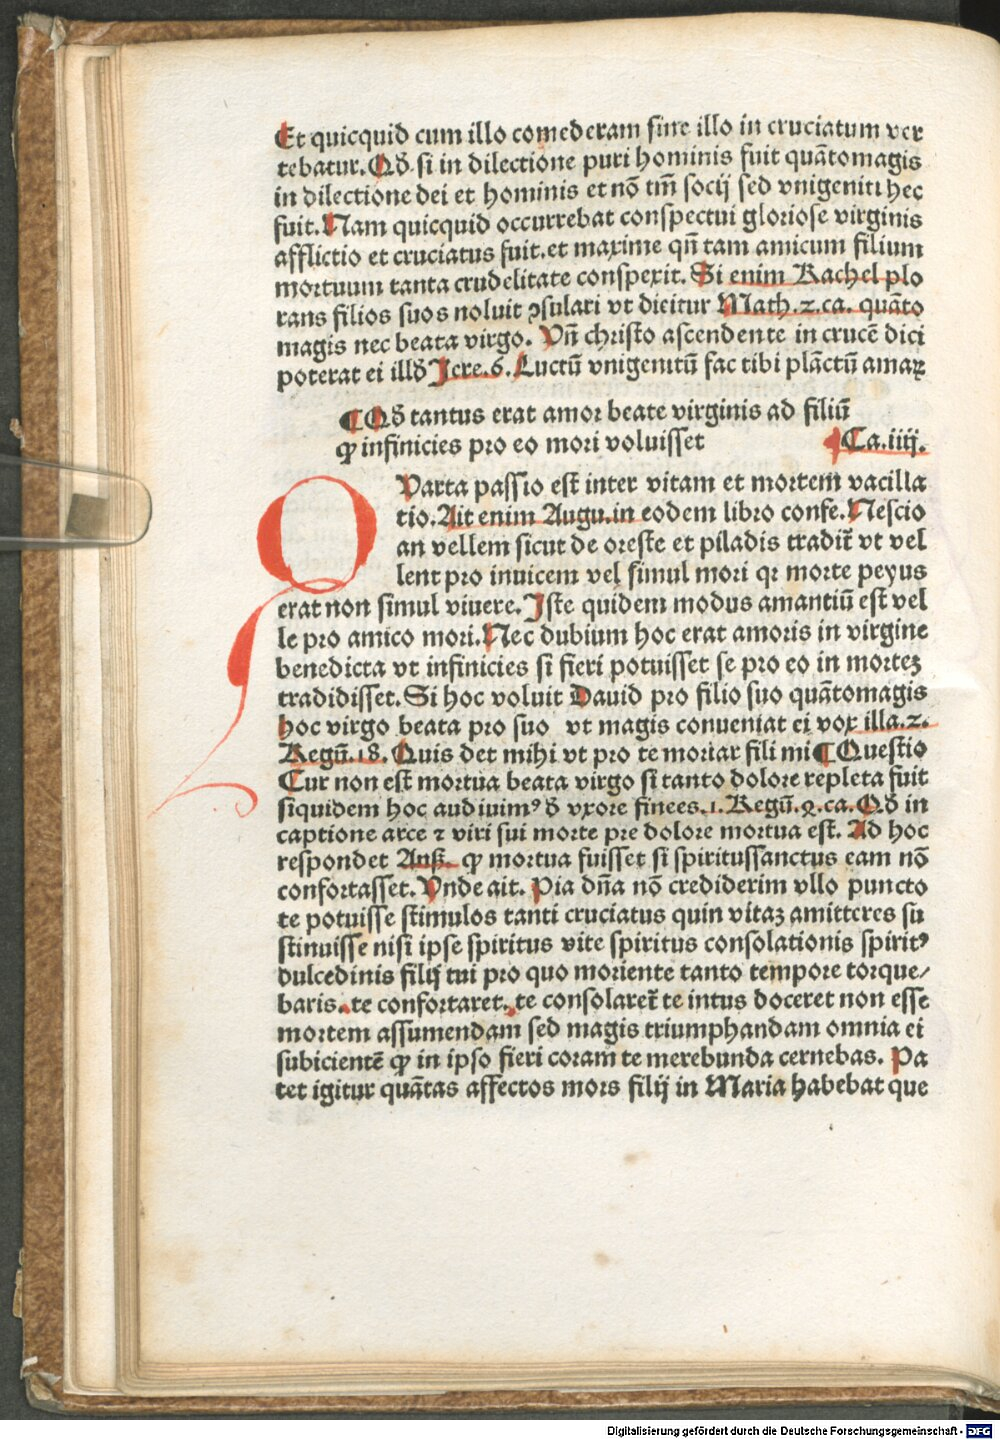 Et quicquid cum illo comederam sine illo in cruciatum ver
tebatur. Qď si in dilectione puri hominis fuit quātomagis
in dilectione dei et hominis et nō tm̄ socij sed vnigeniti hec
fuit. Nam quicquid occurrebat conspectui gloriose virginis
afflictio et cruciatus fuit. et maxime qn̄ tam amicum filium
mortuum tanta crudelitate conspexit. Si enim Rachel plo
rans filios suos noluit ꝯsulari vt dicitur Math. 2. ca. quāto
magis nec beata virgo. Vn̄ christo ascendente in crucē dici
poterat ei illď Jere. 6. Luctū vnigenitū fac tibi plāctū amaꝝ
¶ Qď tantus erat amor beate virginis ad filiū
ꝙ infinicies pro eo mori voluisset Ca. iiij.
QVarta passio est inter vitam et mortem vacilla
tio. Ait enim Augu. in eodem libro confe. Nescio
an vellem sicut de oreste et piladis tradit̄ vt vel
lent pro inuicem vel simul mori qꝛ morte peyus
erat non simul viuere. Iste quidem modus amantiū est vel
le pro amico mori. Nec dubium hoc erat amoris in virgine
benedicta vt infinicies si fieri potuisset se pro eo in morteꝫ
tradidisset. Si hoc voluit Dauid pro filio suo quātomagis
hoc virgo beata pro suo vt magis conueniat ei vox illa. 2.
Regū. 18. Quis det mihi vt pro te moriar fili mi ¶ Questio
Cur non est mortua beata virgo si tanto dolore repleta fuit
siquidem hoc audiuimꝰ ď vxore finees. 1. Regū. 4. ca. Qď in
captione arce ⁊ viri sui morte pre dolore mortua est. Ad hoc
respondet Ans̄. ꝙ mortua fuisset si spiritussanctus eam nō
confortasset. Vnde ait. Pia dn̄a nō crediderim vllo puncto
te potuisse stimulos tanti cruciatus quin vitaꝫ amitteres su
stinuisse nisi ipse spiritus vite spiritus consolationis spiritꝰ
dulcedinis filij tui pro quo moriente tanto tempore torque/
baris. te confortaret. te consolaret̄ te intus doceret non esse
mortem assumendam sed magis triumphandam omnia ei
subicientē ꝙ in ipso fieri coram te merebunda cernebas. Pa
tet igitur quātas affectos mors filij in Maria habebat que
Digitalisierung gefördert durch die Deutsche Forschungsgemeinschaft - DFG